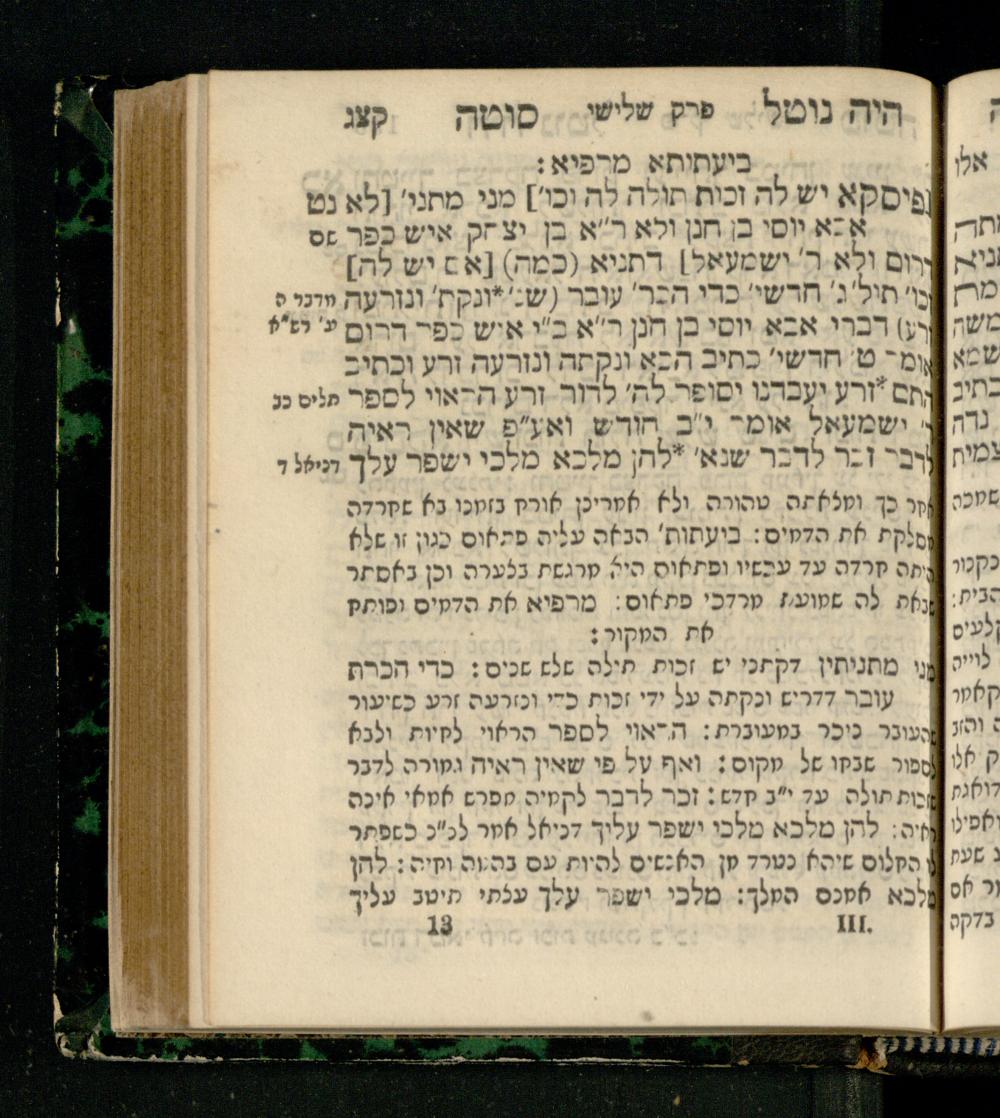 היה נוטל פרק שלישי סוטה קצג
ביעתותא מרפיא:
פיסקא יש לה זכות תולה לה וכו'] מני מתני' [לא נט
אבא יוסי בן חנן ולא ר"א בן יצחק איש כפר שס
דרום ולא ר' ישמעאל] דתניא (כמה) [אם יש לה]
וכו' תול' ג' חדשי' כדי הכר' עובר (שנ' *ונקת' ונזרעה מדבר ה
זרע) דברי אבא יוסי בן חנן ר"א ב"י איש כפר דרום ע' רש"א
אומר ט' חדשי' כתיב הכא ונקתה ונזרעה זרע וכתיב
התם *זרע יעבדנו יסופר לה' לדור זרע הראוי לספר תלים כב
ר' ישמעאל אומר י"ב חודש ואע"פ שאין ראיה
לדבר זכר לדבר שנא' *להן מלכא מלכי ישפר עלך דניאל ד
אחר כך ומלאתה טהורה ולא אמרינן אורח בזמנו בא שחרדה
מסלקת את הדמים: ביעתות' הבאה עליה פתאום כגון זו שלא
היתה חרדה עד עכשיו ופתאום היא מרגשת בצערה וכן באסתר
שבאת לה שמועת מרדכי פתאום: מרפיא את הדמים ופותח
את המקור:
מני מתניתין דקתני יש זכות תולה שלש שנים: כדי הכרת
עובר דדריש ונקתה על ידי זכות כדי ונזרעה זרע כשיעור
שהעובר ניכר במעוברת: הראוי לספר הראוי לחיות ולבא
לספור שבחו של מקום: ואף על פי שאין ראיה גמורה לדבר
שזכות תולה עד י"ב חדש: זכר לדבר לקמיה מפרש אמאי אינה
ראיה: להן מלכא מלכי ישפר עליך דניאל אמר לנ"נ כשפתר
לו החלום שיהא נטרד מן האנשים להיות עם בהמה וחיה: להן
מלכא אמנם המלך: מלכי ישפר עלך עצתי תיטב עליך
III. 13